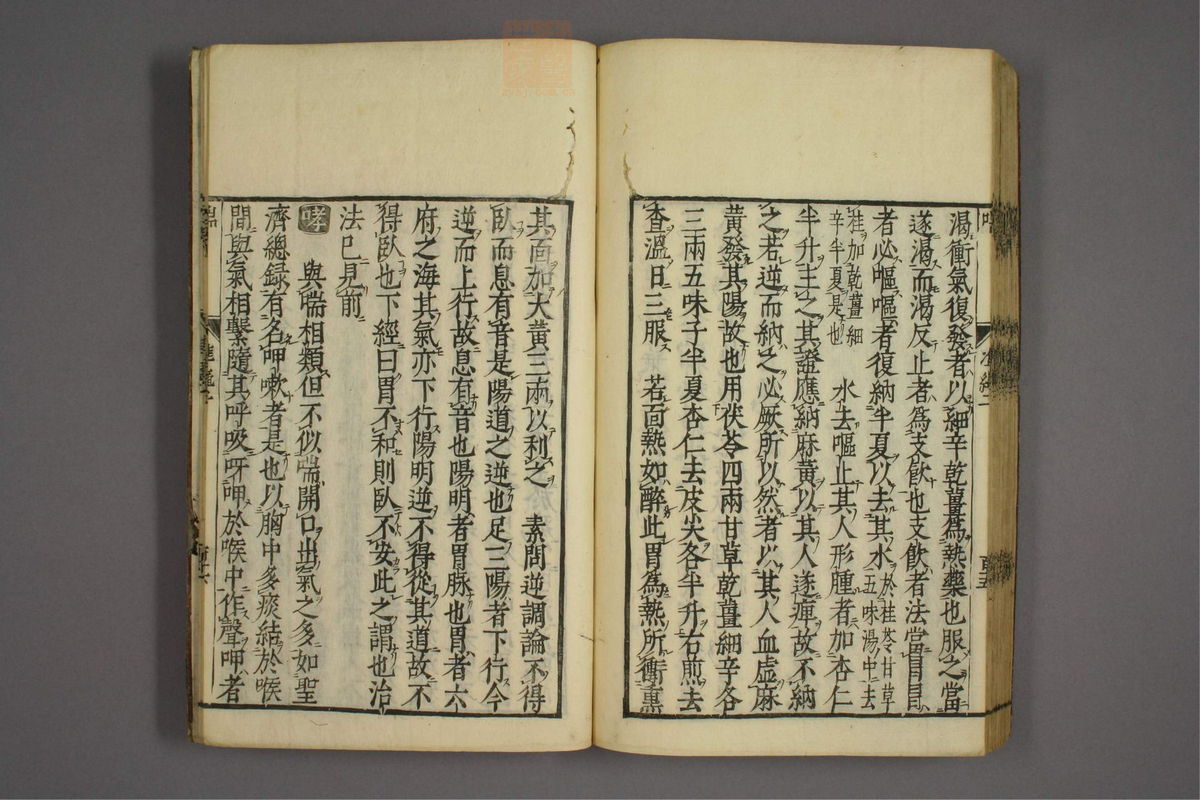 渴衝氣復發者以細辛乾薑爲熱藥也服之當
遂渴而渴反止者爲支飲也支飲者法當冒冒
者必嘔嘔者復納半夏以去其水於桂苓甘草五味湯中去
桂加乾薑細辛半夏是也 水去嘔止其人形腫者加杏仁
半升主之其證應納麻黄以其人遂痺故不納
之若逆而納之必厥所以然者以其人血虛麻
黄發其陽故也用茯苓四兩甘草乾薑細辛各
三兩五味子半夏杏仁去皮尖各半升右煎去
查溫日三服 若面熱如醉此胃爲熱所衝熏
其面加大黄三兩以利之 素問逆調論不得
臥而息有音是陽道之逆也足三陽者下行今
逆而上行故息有音也陽明者胃脉也胃者六
府之海其氣亦下行陽明逆不得從其道故不
得臥也下經曰胃不和則臥不安此之謂也治
法已見前
哮 與喘相類但不似喘開口出氣之多如聖
濟總録有名呷嗽者是也以胸中多痰結於喉
間與氣相繫隨其呼吸呀呷於喉中作聲呷者